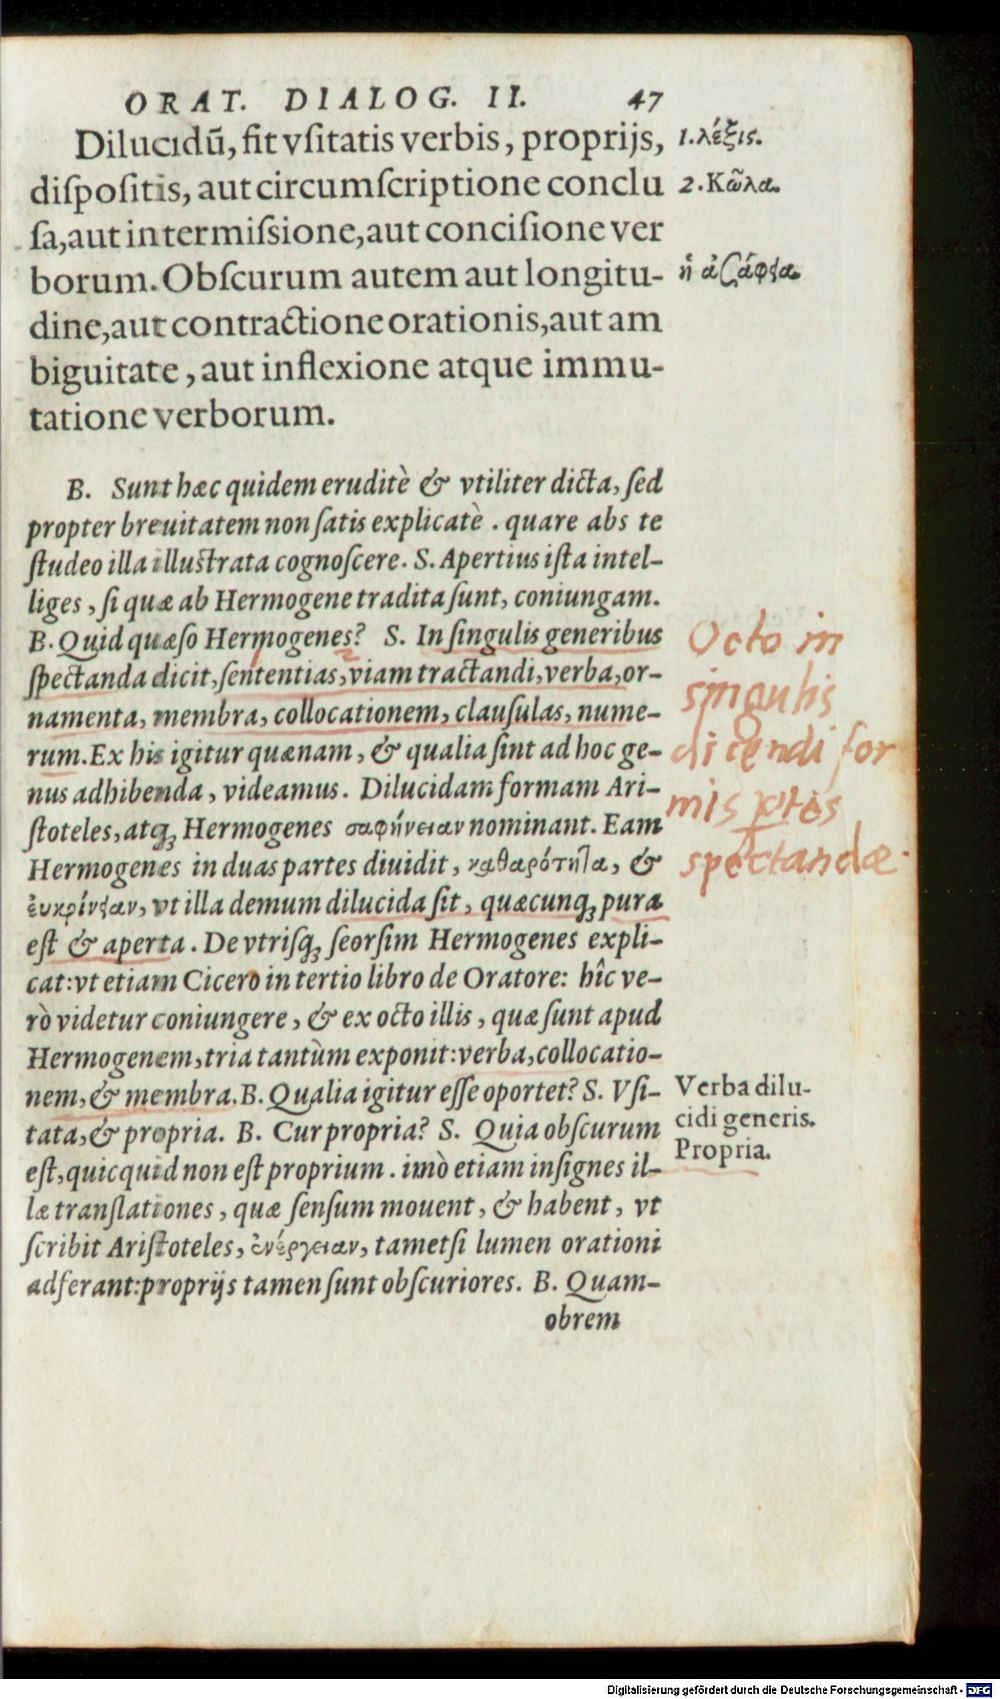 ORAT. DIALOG. II. 47
Dilucidū, fit vſitatis verbis, proprijs,
diſpoſitis, aut circumſcriptione conclu
ſa, aut intermiſsione, aut conciſione ver
borum. Obſcurum autem aut longitu-
dine, aut contractione orationis, aut am
biguitate, aut inflexione atque immu-
tatione verborum.
1. λέξις.
2. Κῶλα.
ἡ ἀσάφεια.
B. Sunt hæc quidem eruditè & vtiliter dicta, ſed
propter breuitatem non ſatis explicatè. quare abs te
ſtudeo illa illuſtrata cognoſcere. S. Apertius iſta intel-
liges, ſi quæ ab Hermogene tradita ſunt, coniungam.
B. Quid quæſo Hermogenes? S. In ſingulis generibus
ſpectanda dicit, ſententias, viam tractandi, verba, or-
namenta, membra, collocationem, clauſulas, nume-
rum. Ex his igitur quænam, & qualia ſint ad hoc ge-
nus adhibenda, videamus. Dilucidam formam Ari-
ſtoteles, atq; Hermogenes σαφήνειαν nominant. Eam
Hermogenes in duas partes diuidit, καθαρότητα, &
ἐυκρίνειαν, vt illa demum dilucida ſit, quæcunq; pura
eſt & aperta. De vtriſq; ſeorſim Hermogenes expli-
cat: vt etiam Cicero in tertio libro de Oratore: hîc ve-
rò videtur coniungere, & ex octo illis, quæ ſunt apud
Hermogenem, tria tantùm exponit: verba, collocatio-
nem, & membra. B. Qualia igitur eſſe oportet? S. Vſi-
tata, & propria. B. Cur propria? S. Quia obſcurum
eſt, quicquid non eſt proprium. imò etiam inſignes il-
læ translationes, quæ ſenſum mouent, & habent, vt
ſcribit Ariſtoteles, ἐνέργειαν, tametſi lumen orationi
adferant: proprijs tamen ſunt obſcuriores. B. Quam-
obrem
Octo in
singulis
dicendi for
mis ptes
spectandæ.
Verba dilu-
cidi generis.
Propria.
Digitalisierung gefördert durch die Deutsche Forschungsgemeinschaft - DFG